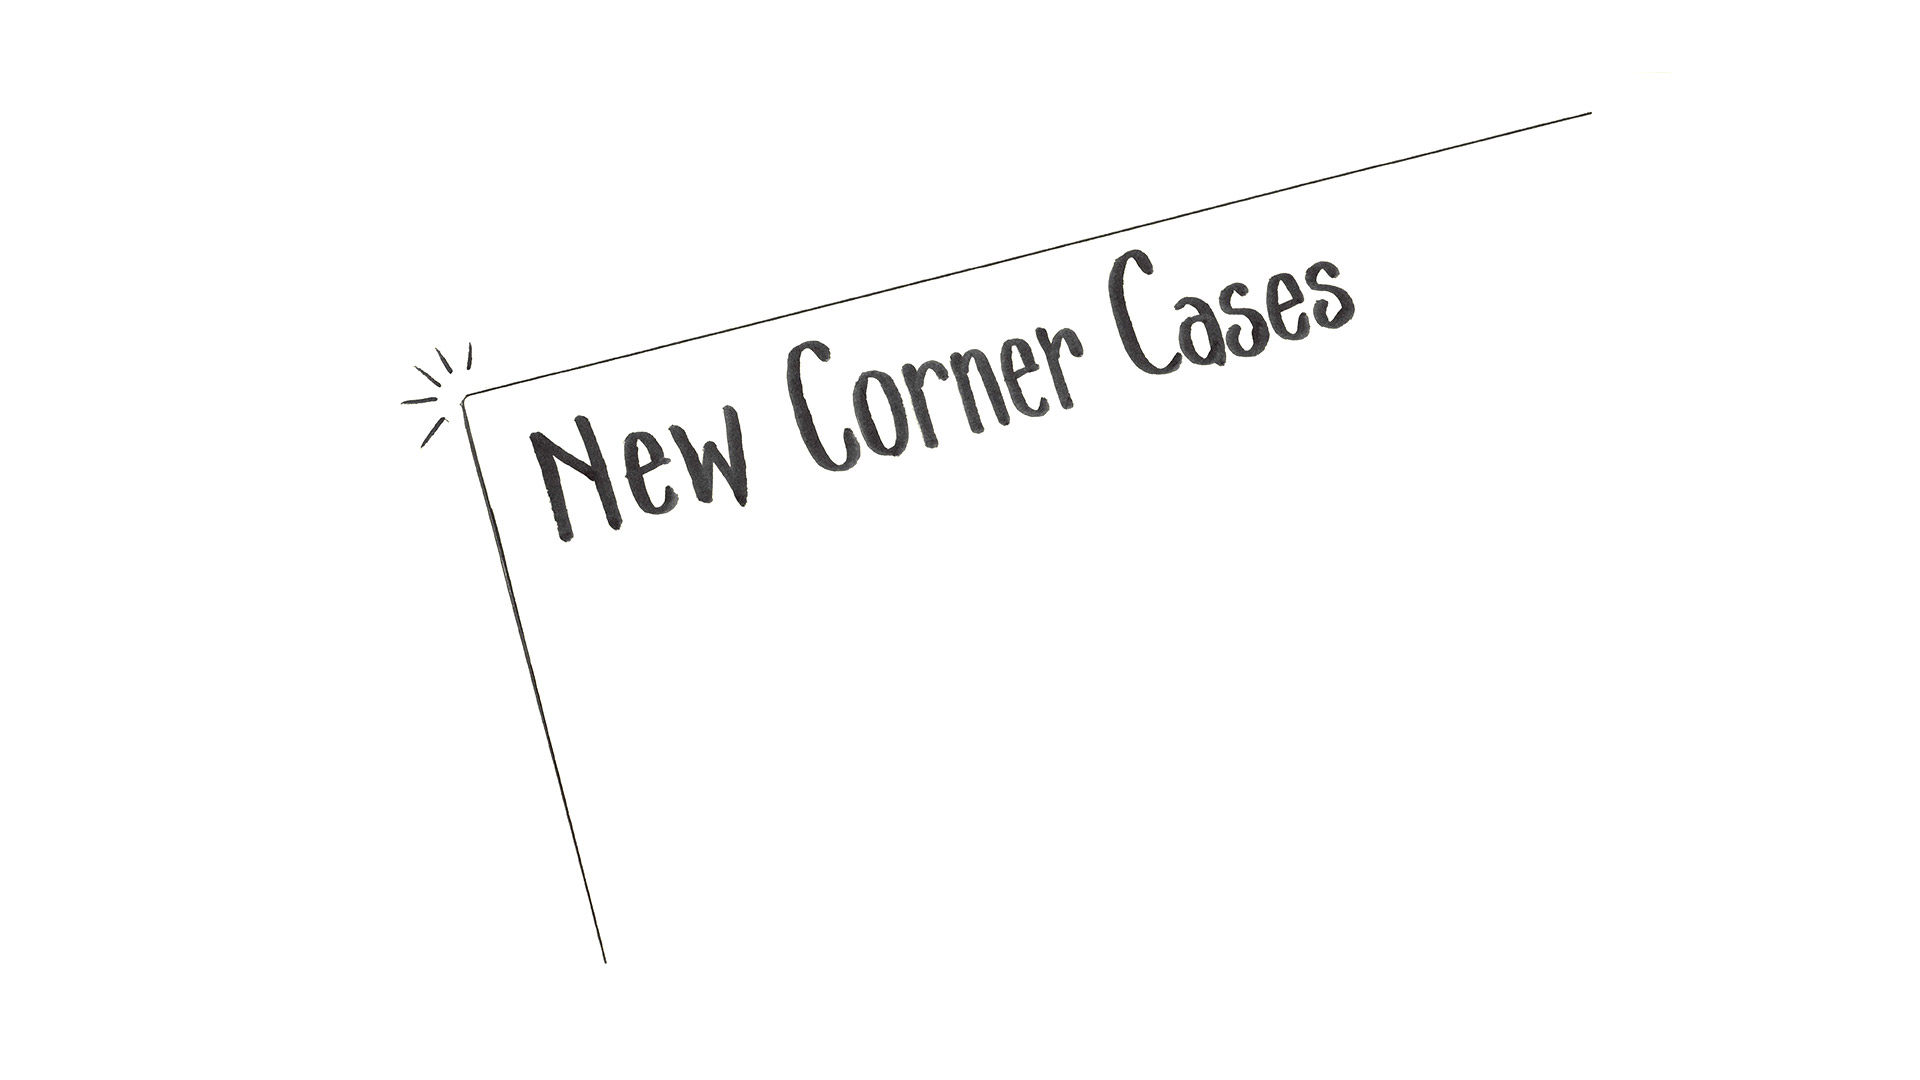 New Corner Cases